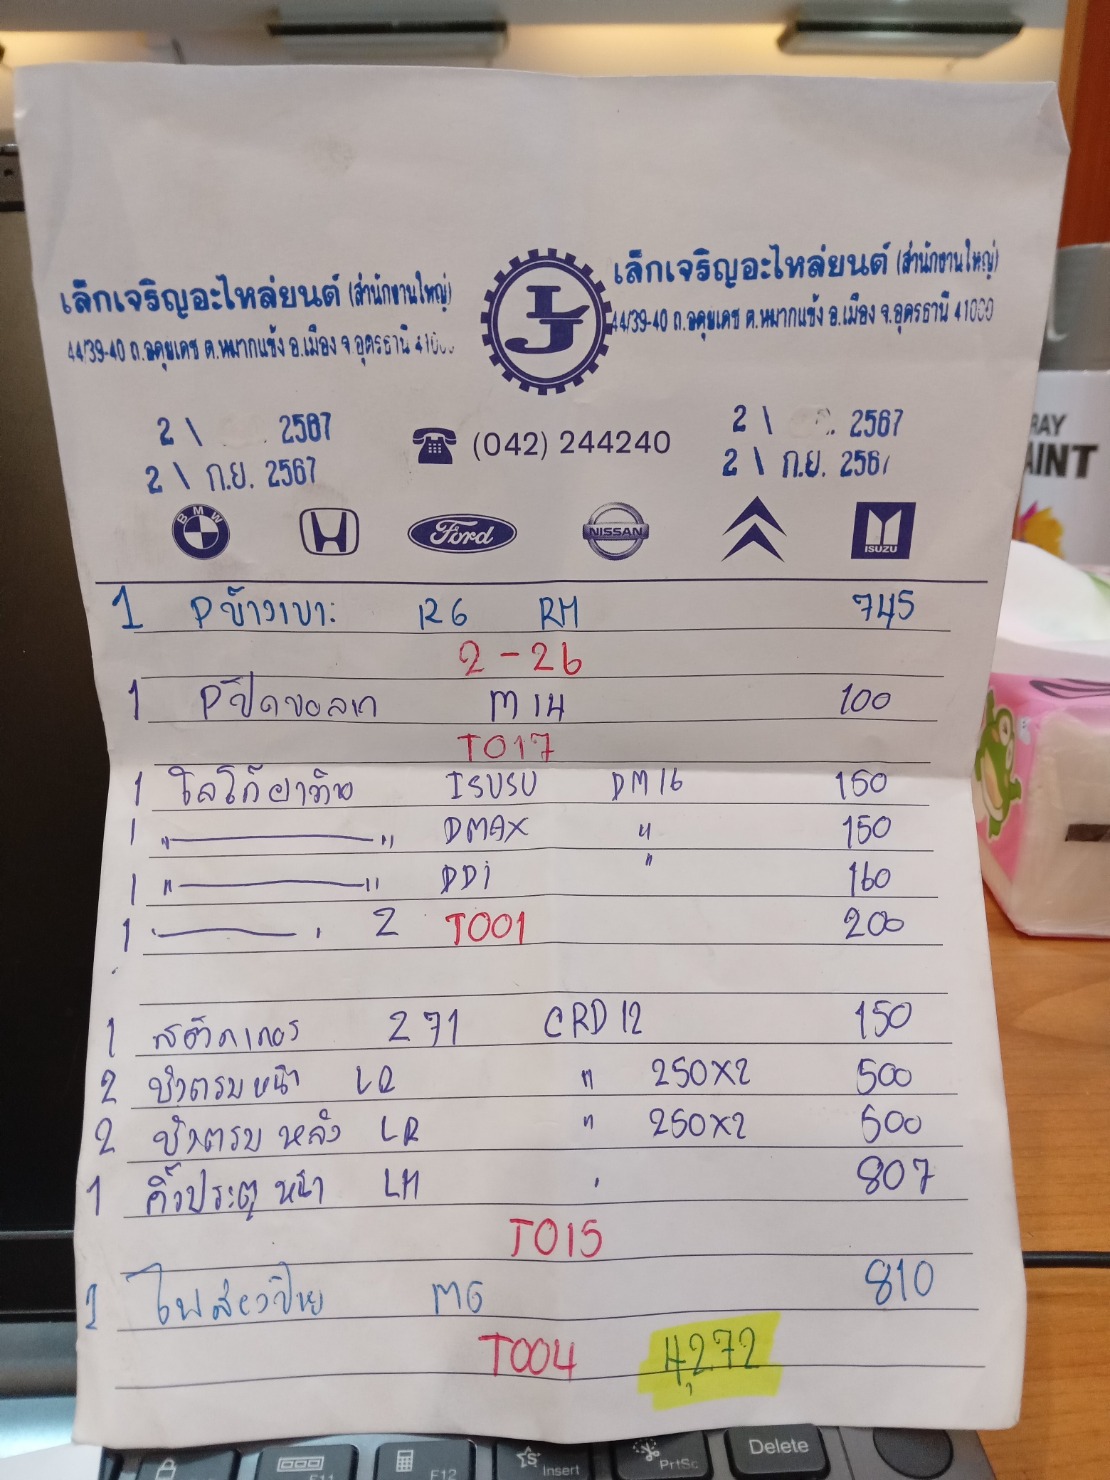 เล็กเจริญอะไหล่ยนต์ (สำนักงานใหญ่)
44/39-40 ถ.อดุยเดช ต.หมากแข้ง อ.เมือง จ.อุดรธานี 41000
LJ
เล็กเจริญอะไหล่ยนต์ (สำนักงานใหญ่)
44/39-40 ถ.อดุยเดช ต.หมากแข้ง อ.เมือง จ.อุดรธานี 41000
2 \ 2567
2 \ ก.ย. 2567
(042) 244240
2 \ 2567
2 \ ก.ย. 2567
BMW H Ford NISSAN ISUZU
1 Pข้างเบาะ R6 RM 745
2-26
1 Pปิดขอลาก M14 100
T017
1 โลโก้ฝาท้าย ISUSU DM16 150
1 " " DMAX " 150
1 " " DDi " 160
1 " " 2 T001 200
1 สติ๊กเกอร์ 271 CRD12 150
2 LR " 250x2 500
2 หลัง LR " 250x2 500
1 คิ้วประตูหน้า LH " 807
T015
1 MG 810
T004 4,272
RAY
AINT
F11
F12
Insert
PrtSc
Delete